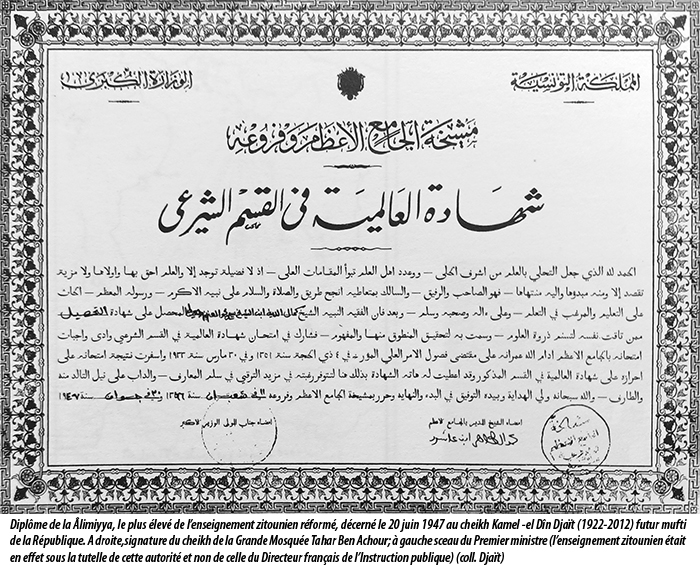 المملكة التونسية
الوزارة الكبرى
مشيخة الجامع الأعظم وفروعه
شهادة العالمية في القسم الشرعي
الحمد لله الذي جعل التحلي بالعلم من اشرف الحلى — ووعدد اهل العلم تبوأ المقامات العلى — اذ لا فضيلة توجد إلا والعلم احق بها واولاها ولا مزية
تقصد إلا ومنه مبدؤها واليه منتهاها — فهو الصاحب والرفيق — والسالك بمتعاطيه انجح طريق والصلاة والسلام على نبيه الاكرم — ورسوله المعظم — الحاث
على التعليم والمرغب في التعلم — وعلى ءاله وصحبه وسلم — وبعد فان الفقيه النبيه الشيخ المحصل على شهادة التحصيل
ممن تاقت نفسه لتسنم ذروة العلوم — وسمت به لتحقيق المنطوق منها والمفهوم — فشارك في امتحان شهادة العالمية في القسم الشرعي وادى واجبات
امتحانه بالجامع الاعظم ادام الله عمرانه على مقتضى فصول الامر العلي المؤرخ في ٤ ذي الحجة سنة ١٣٥١ وفي ٣٠ مارس سنة ١٩٣٣ واسفرت نتيجة امتحانه على
احرازه على شهادة العالمية في القسم المذكور وقد اعطيت له هاته الشهادة بذلك هنا لتتوفر رغبته في مزيد الترقي في سلم المعارف — والداب على نيل التالد منه
والطارف — والله سبحانه ولي الهداية وبيده التوفيق في البدء والنهاية وحرر بمشيخة الجامع الاعظم وفروعه في شعبان سنة ١٣٦٦ وفي جوان سنة ١٩٤٧
امضاء الشيخ المدير بالجامع الاعظم
امضاء جناب المولى الوزير الاكبر
محمد الطاهر ابن عاشور
Diplôme de la Âlimiyya, le plus élevé de l'enseignement zitounien réformé, décerné le 20 juin 1947 au cheikh Kamel -el Dîn Djaït (1922-2012) futur mufti
de la République. A droite,signature du cheikh de la Grande Mosquée Tahar Ben Achour; à gauche sceau du Premier ministre (l'enseignement zitounien était
en effet sous la tutelle de cette autorité et non de celle du Directeur français de l'Instruction publique) (coll. Djaït)